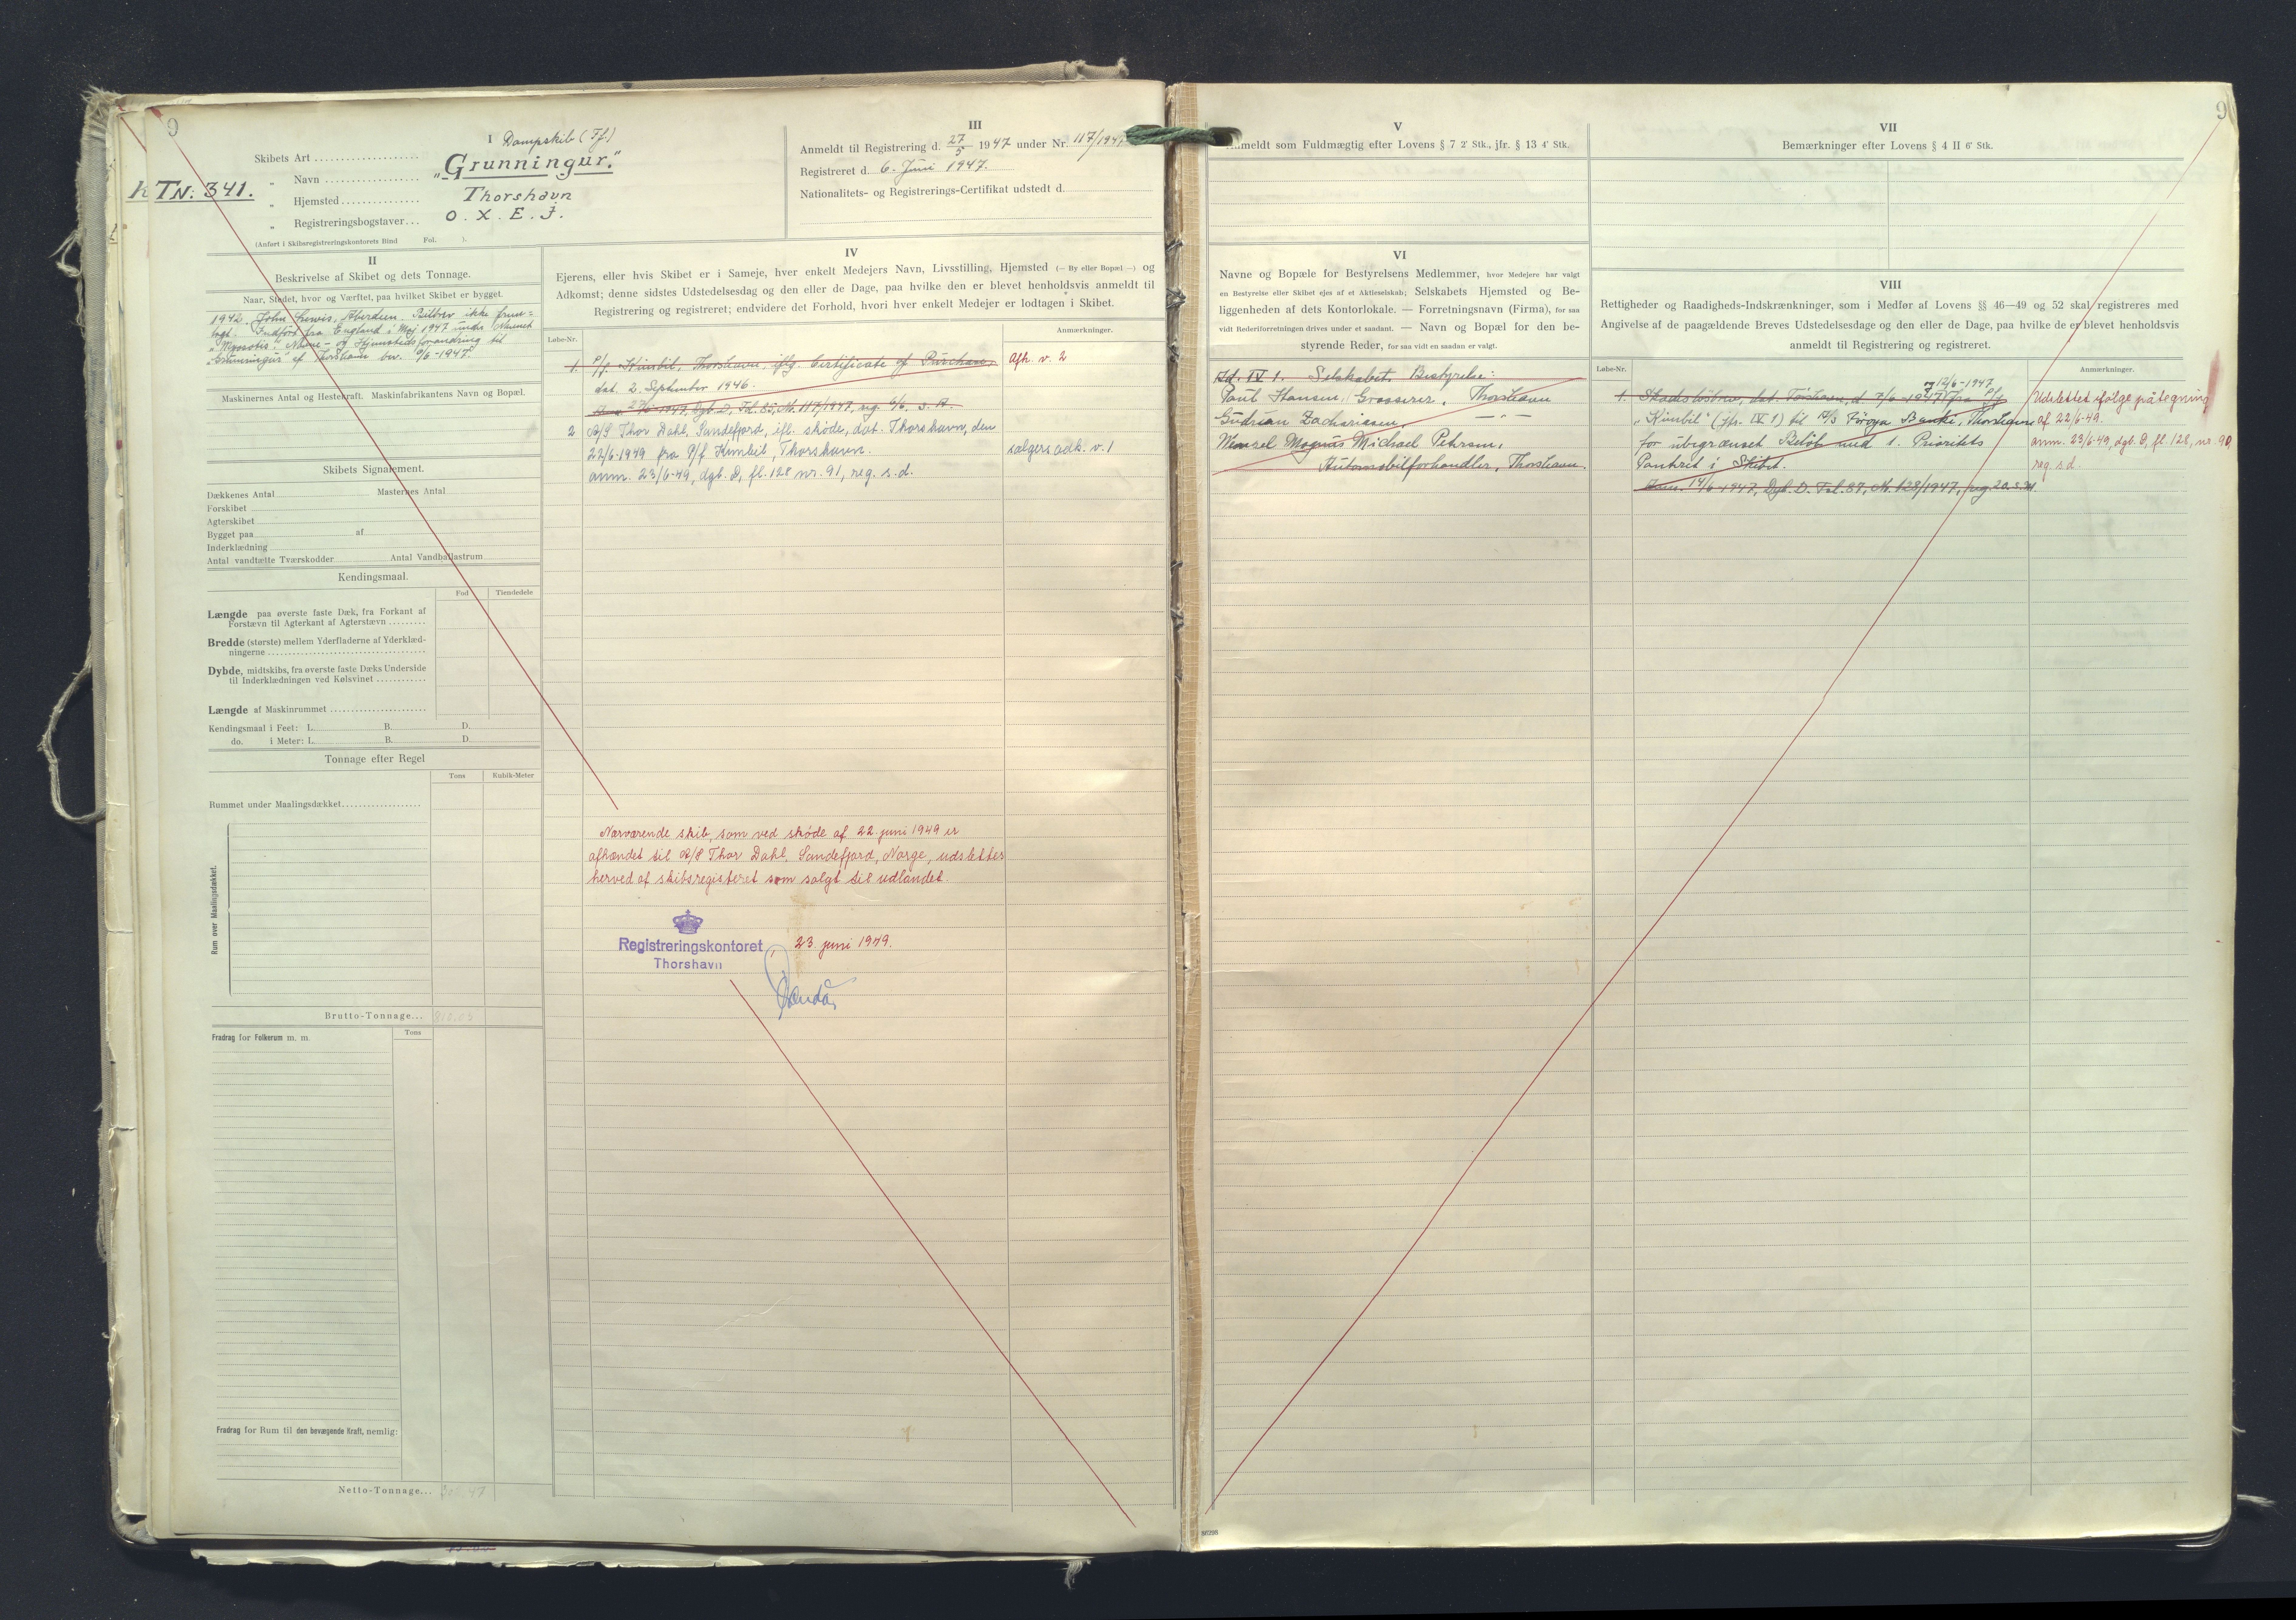 9
I
Skibets Art Dampskib (Ff.)
" Navn „Grunningur."
TN: 341.
" Hjemsted Thorshavn
" Registreringsbogstaver O. X. E. J.
(Anført i Skibsregistreringskontorets Bind Fol. ).
II
Beskrivelse af Skibet og dets Tonnage.
Naar, Stedet, hvor og Værftet, paa hvilket Skibet er bygget.
1942. John Lewis, Aberdeen. Bilbrev ikke frem=
lagt. Indført fra England i Maj 1947 under Navnet
„Myosotis". Navne- og Hjemstedsforandring til
„Grunningur" af Thorshavn bev. 6/6-1947.
Maskinernes Antal og Hestekraft. Maskinfabrikantens Navn og Bopæl.
Skibets Signalement.
Dækkenes Antal Masternes Antal
Forskibet
Agterskibet
Bygget paa af
Inderklædning
Antal vandtætte Tværskodder Antal Vandballastrum
Kendingsmaal.
Fod Tiendedele
Længde paa øverste faste Dæk, fra Forkant af
Forstævn til Agterkant af Agterstævn
Bredde (største) mellem Yderfladerne af Yderklæd-
ningerne
Dybde, midtskibs, fra øverste faste Dæks Underside
til Inderklædningen ved Kølsvinet
Længde af Maskinrummet
Kendingsmaal i Feet: L. B. D.
do. i Meter: L. B. D.
Tonnage efter Regel
Tons Kubik-Meter
Rummet under Maalingsdækket
Rum over Maalingsdækket.
Brutto-Tonnage... 810.03
Fradrag for Folkerum m. m.
Tons
Fradrag for Rum til den bevægende Kraft, nemlig:
Netto-Tonnage...
III
Anmeldt til Registrering d. 27/5 1947 under Nr. 117/1947
Registreret d. 6. Juni 1947.
Nationalitets- og Registrerings-Certifikat udstedt d.
IV
Ejerens, eller hvis Skibet er i Sameje, hver enkelt Medejers Navn, Livsstilling, Hjemsted (— By eller Bopæl —) og
Adkomst; denne sidstes Udstedelsesdag og den eller de Dage, paa hvilke den er blevet henholdsvis anmeldt til
Registrering og registreret; endvidere det Forhold, hvori hver enkelt Medejer er lodtagen i Skibet.
Løbe-Nr. Anmærkninger.
1. P/f. Kimbil, Thorshavn, iflg. Certificate of Purchase, Afh. v. 2
dat. 2. September 1946.
Anm. 27/5 1947, Dgb. D, Fol. 85, Nr. 117/1947, reg. 6/6. s. A.
2 A/S Thor Dahl, Sandefjord, ifl. skøde, dat. Thorshavn, den
22/6-1949 fra P/f Kimbil, Thorshavn. sælgers adk. v. 1
anm. 23/6-49, dgb. D, fl. 128 nr. 91, reg. s. d.
Nærværende skib, som ved skøde af 22. juni 1949 er
afhændet til A/S Thor Dahl, Sandefjord, Norge, udslettes
herved af skibsregisteret som solgt til udlandet.
Registreringskontoret 23. juni 1949.
Thorshavn
9
V
Anmeldt som Fuldmægtig efter Lovens § 7 2' Stk., jfr. § 13 4' Stk.
VI
Navne og Bopæle for Bestyrelsens Medlemmer, hvor Medejere har valgt
en Bestyrelse eller Skibet ejes af et Aktieselskab; Selskabets Hjemsted og Be-
liggenheden af dets Kontorlokale. — Forretningsnavn (Firma), for saa
vidt Rederiforretningen drives under et saadant. — Navn og Bopæl for den be-
styrende Reder, for saa vidt en saadan er valgt.
Ad. IV 1. Selskabets Bestyrelse:
Poul Hansen, Grosserer, Thorshavn
Gudrun Zachariasen, — " —
Magnus Michael Petersen,
Automobilforhandler, Thorshavn.
VII
Bemærkninger efter Lovens § 4 II 6' Stk.
VIII
Rettigheder og Raadigheds-Indskrænkninger, som i Medfør af Lovens §§ 46—49 og 52 skal registreres med
Angivelse af de paagældende Breves Udstedelsesdage og den eller de Dage, paa hvilke de er blevet henholdsvis
anmeldt til Registrering og registreret.
Løbe-Nr. Anmærkninger.
12/6-1947
1. Skadesløsbrev, dat. Tórshavn, d. 7/6-1947 fra P/f Udslettet ifølge påtegning
„Kimbil" (jfr. IV 1) til A/S Føroya Banki, Thorshavn af 22/6-49.
for ubegrænset Beløb med 1. Prioritets anm. 23/6-49, dgb. D, fl. 128, nr. 90,
Panteret i Skibet. reg. s. d.
Anm. 14/6-1947, Dgb. D. Fol. 87, Nr. 128/1947, reg. 20. s. M.